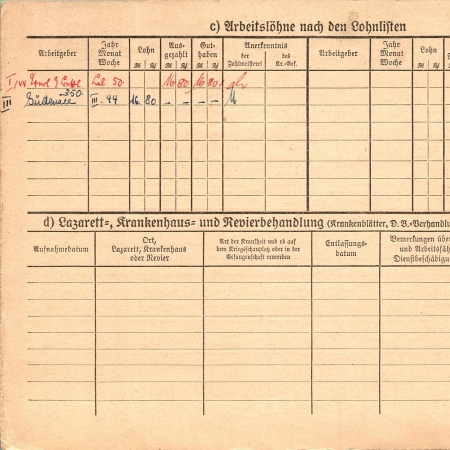 c) Arbeitslöhne nach den Lohnlisten
Arbeitgeber Jahr Monat Woche Lohn Aus-gezahlt Gut-haben Anerkenntnis Arbeitgeber Jahr Monat Woche Lohn
ℳ ₰ ℳ ₰ ℳ ₰ der Zahlmeisterei des Kr.-Gef. ℳ ₰
I/44 50 16 80 16 80
350.
III III. 44 16 80 – – – –
d) Lazarett-, Krankenhaus- und Revierbehandlung (Krankenblätter, D. B.-Verhandlu
Aufnahmedatum Ort, Lazarett, Krankenhaus oder Revier Art der Krankheit und ob auf dem Kriegsschauplatz oder in der Gefangenschaft erworben Entlassungs-datum Bemerkungen über und Arbeitsfäh Dienstbeschädigu